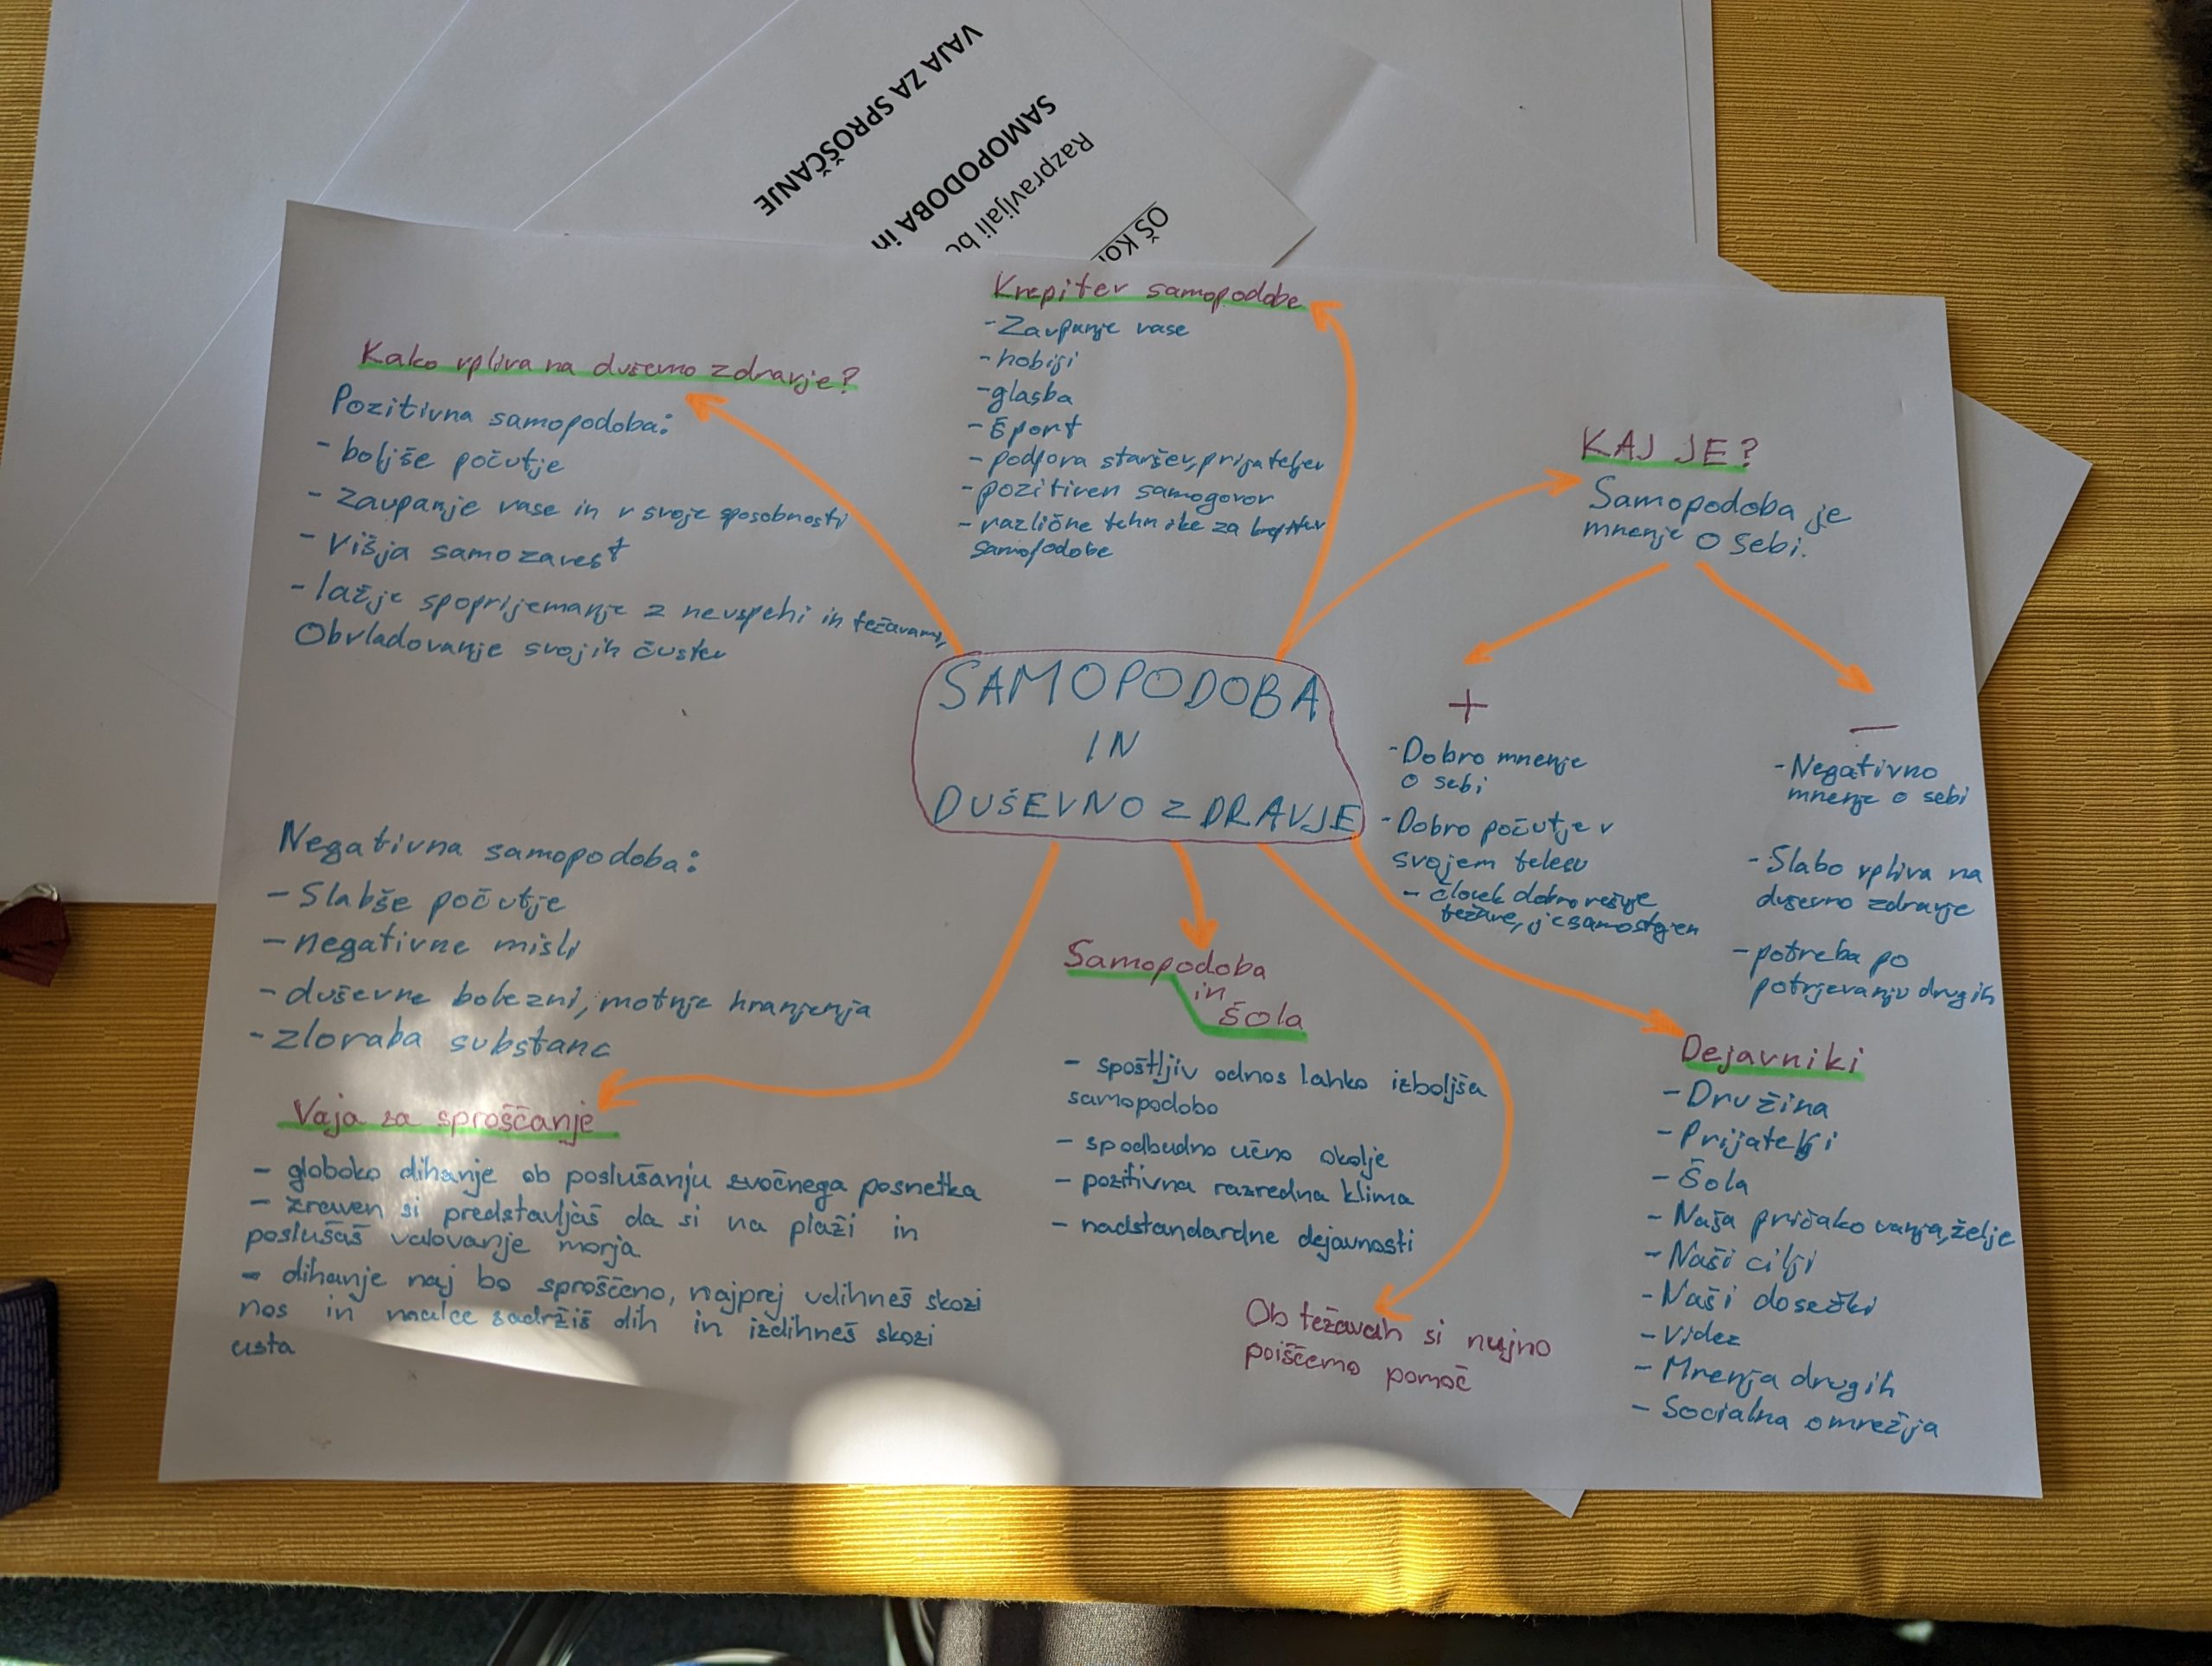 VAJA ZA SPROŠČANJE
SAMOPODOBA in
Razpravljali bo
OŠ KO
Krepitev samopodobe
- Zaupanje vase
- hobiji
- glasba
- Šport
- podpora staršev, prijateljev
- pozitiven samogovor
- različne tehnike za krepitev
samopodobe
Kako vpliva na duševno zdravje?
Pozitivna samopodoba:
- boljše počutje
- zaupanje vase in v svoje sposobnosti
- Višja samozavest
- lažje spoprijemanje z neuspehi in težavami,
Obvladovanje svojih čustev
Negativna samopodoba:
- Slabše počutje
- negativne misli
- duševne bolezni, motnje hranjenja
- zloraba substanc
KAJ JE?
Samopodoba je
mnenje o sebi.
+
- Dobro mnenje
o sebi
- Dobro počutje v
svojem telesu
- človek dobro rešuje
težave, je samostojen
—
- Negativno
mnenje o sebi
- Slabo vpliva na
duševno zdravje
- potreba po
potrjevanju drugih
SAMOPODOBA
IN
DUŠEVNO ZDRAVJE
Vaja za sproščanje
- globoko dihanje ob poslušanju zvočnega posnetka
- zraven si predstavljaš da si na plaži in
poslušaš valovanje morja
- dihanje naj bo sproščeno, najprej vdihneš skozi
nos in nalce zadržiš dih in izdihneš skozi
usta
Samopodoba
in
šola
- spoštljiv odnos lahko izboljša
samopodobo
- spodbudno učno okolje
- pozitivna razredna klima
- nadstandardne dejavnosti
Ob težavah si nujno
poiščemo pomoč
Dejavniki
- Družina
- Prijatelji
- Šola
- Naša pričakovanja, želje
- Naši cilji
- Naši dosežki
- Videz
- Mnenja drugih
- Socialna omrežja